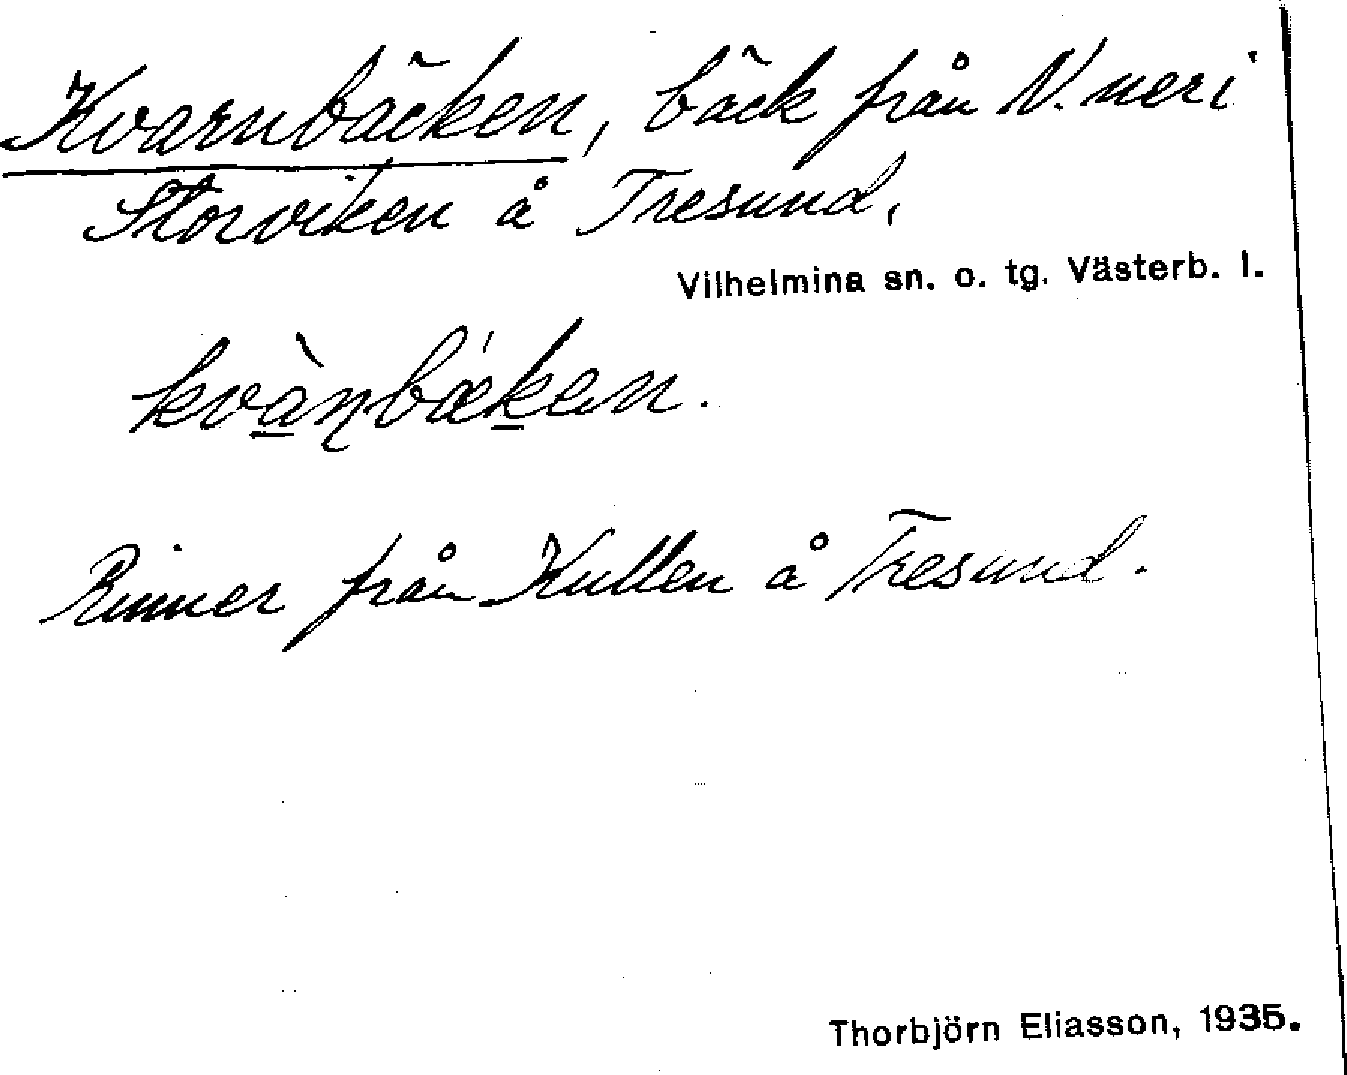 Kvarnbäcken, bäck från N. neri
Storviken å Tresund,
Vilhelmina sn. o. tg. Västerb. l.
kvànbæ̀ken.
Rinner från Kullen å Tresund.
Thorbjörn Eliasson, 1935.